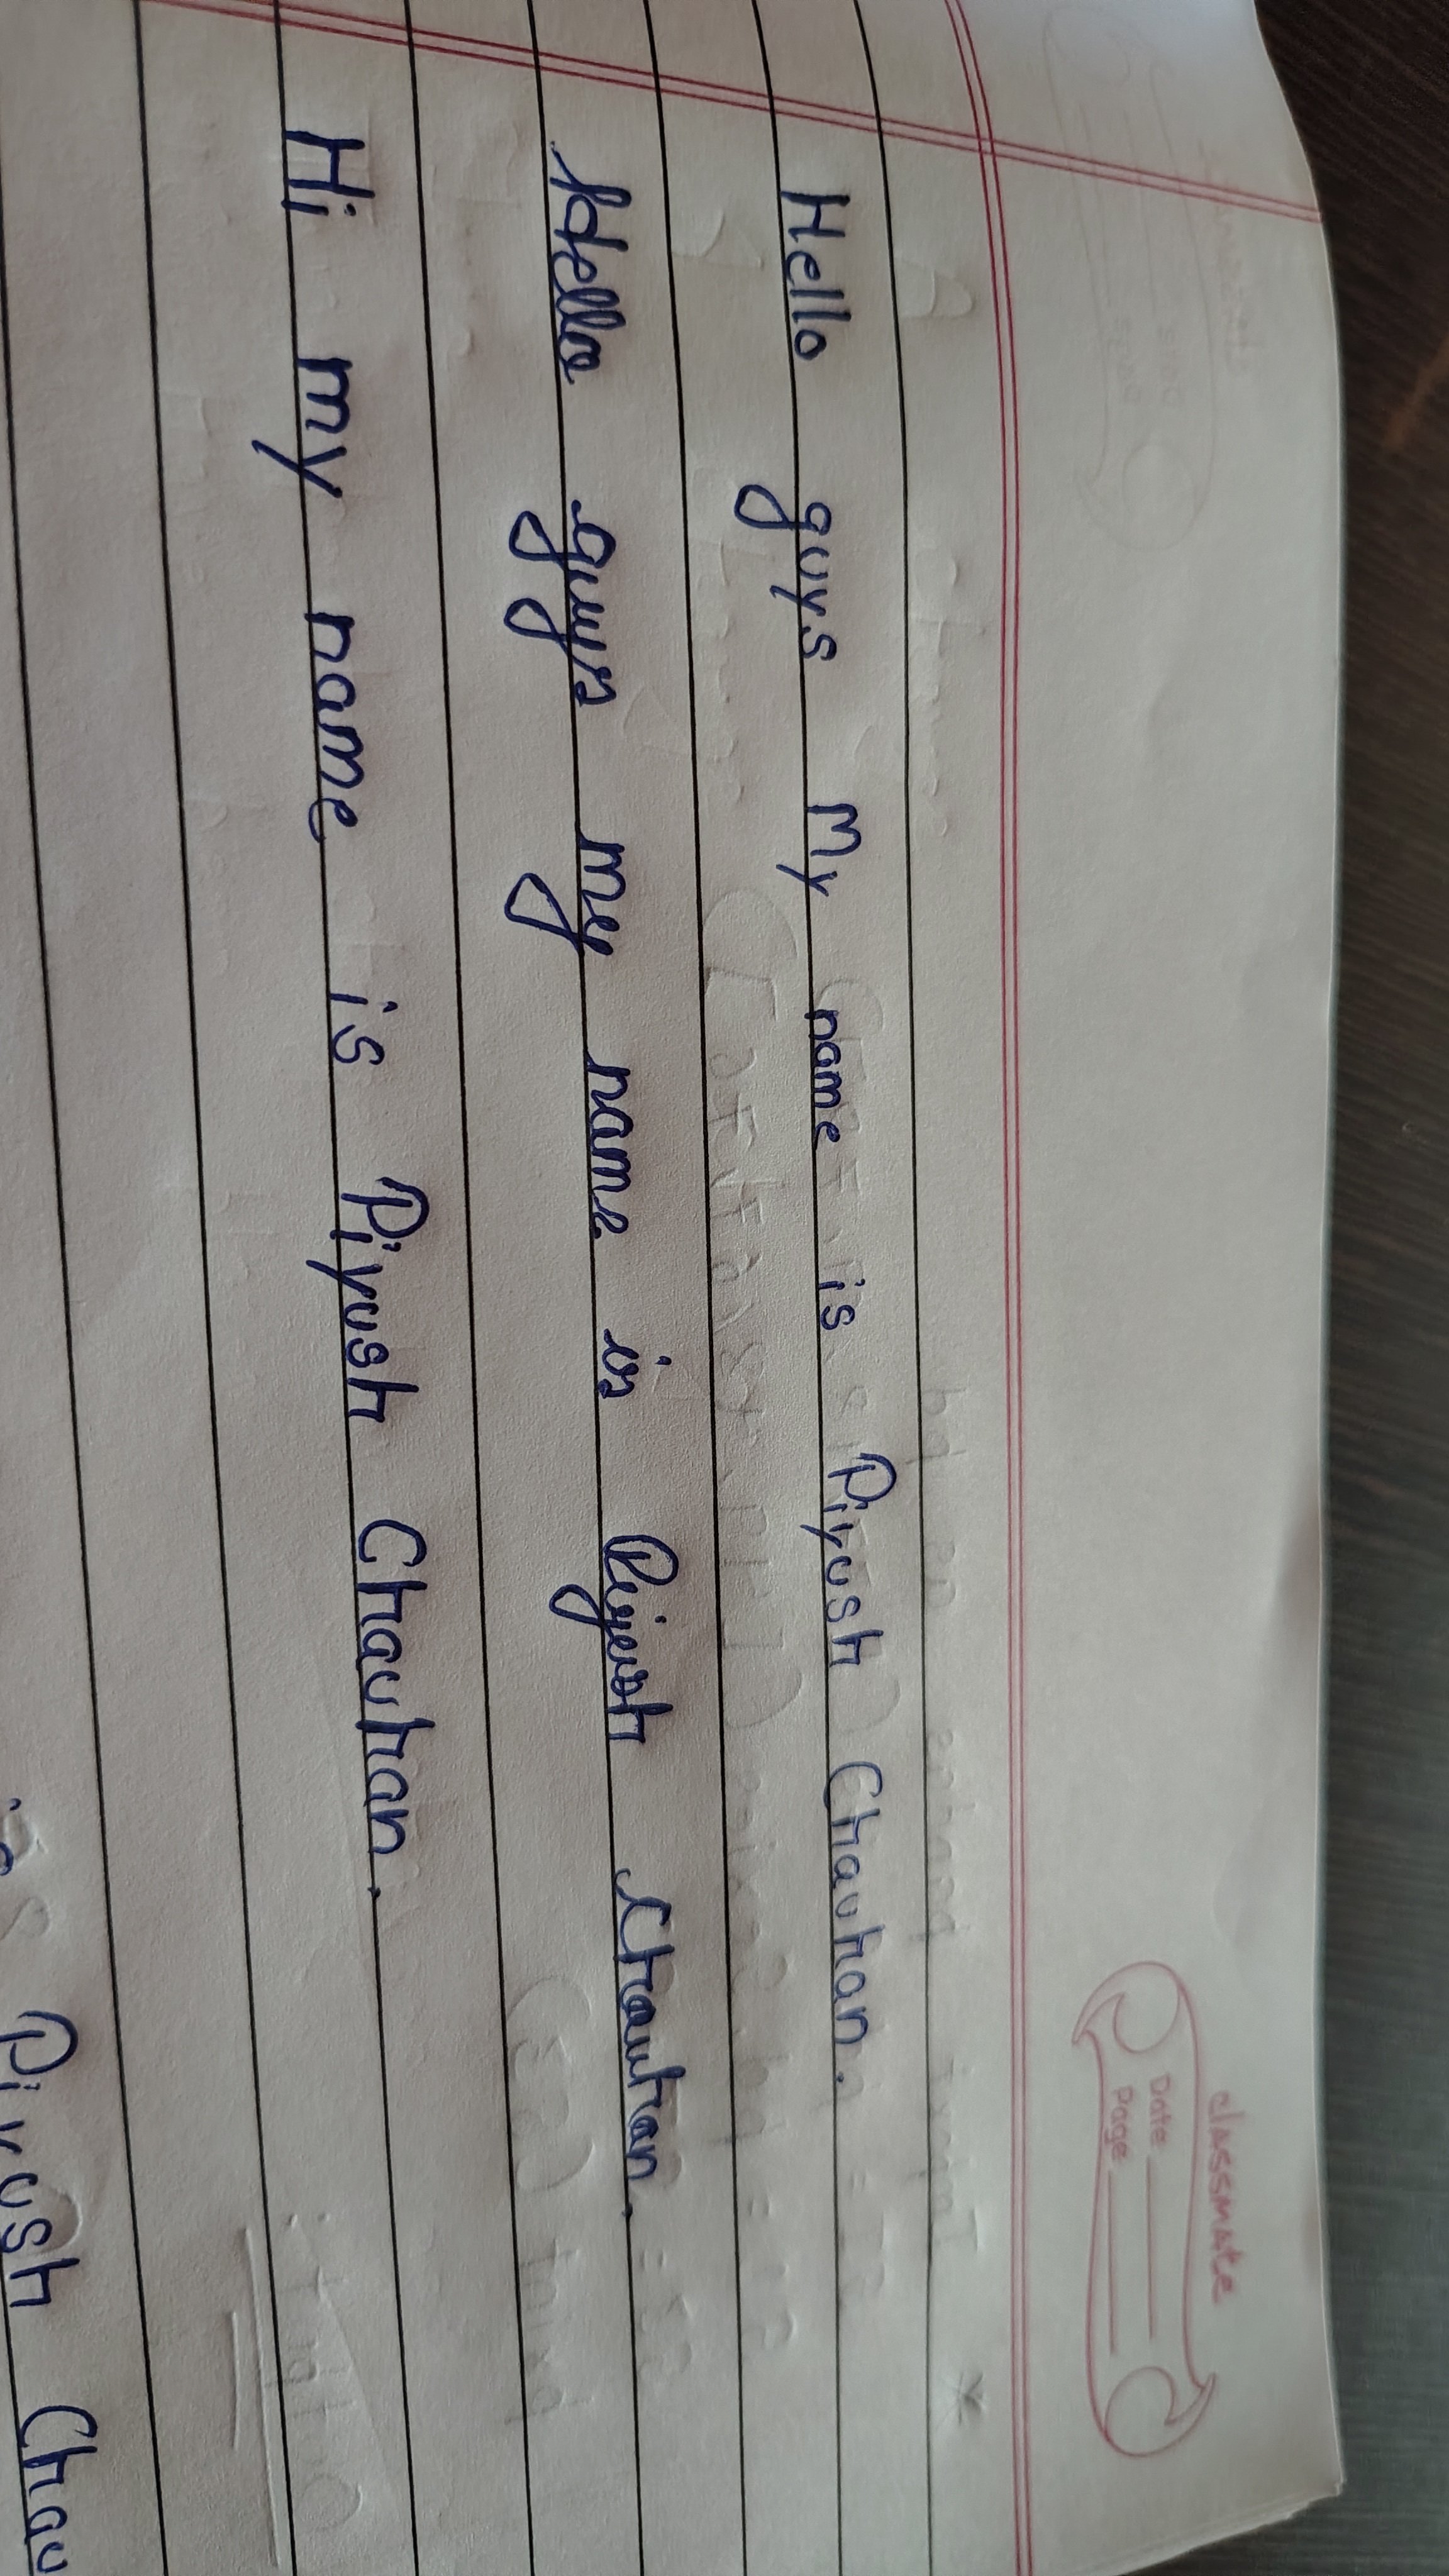 classmate
Date
Page
Hello guys My name is Piyush Chauhan.
Hello guys my name is Piyush Chauhan.
Hi my name is Piyush Chauhan.
is Piyush Chau